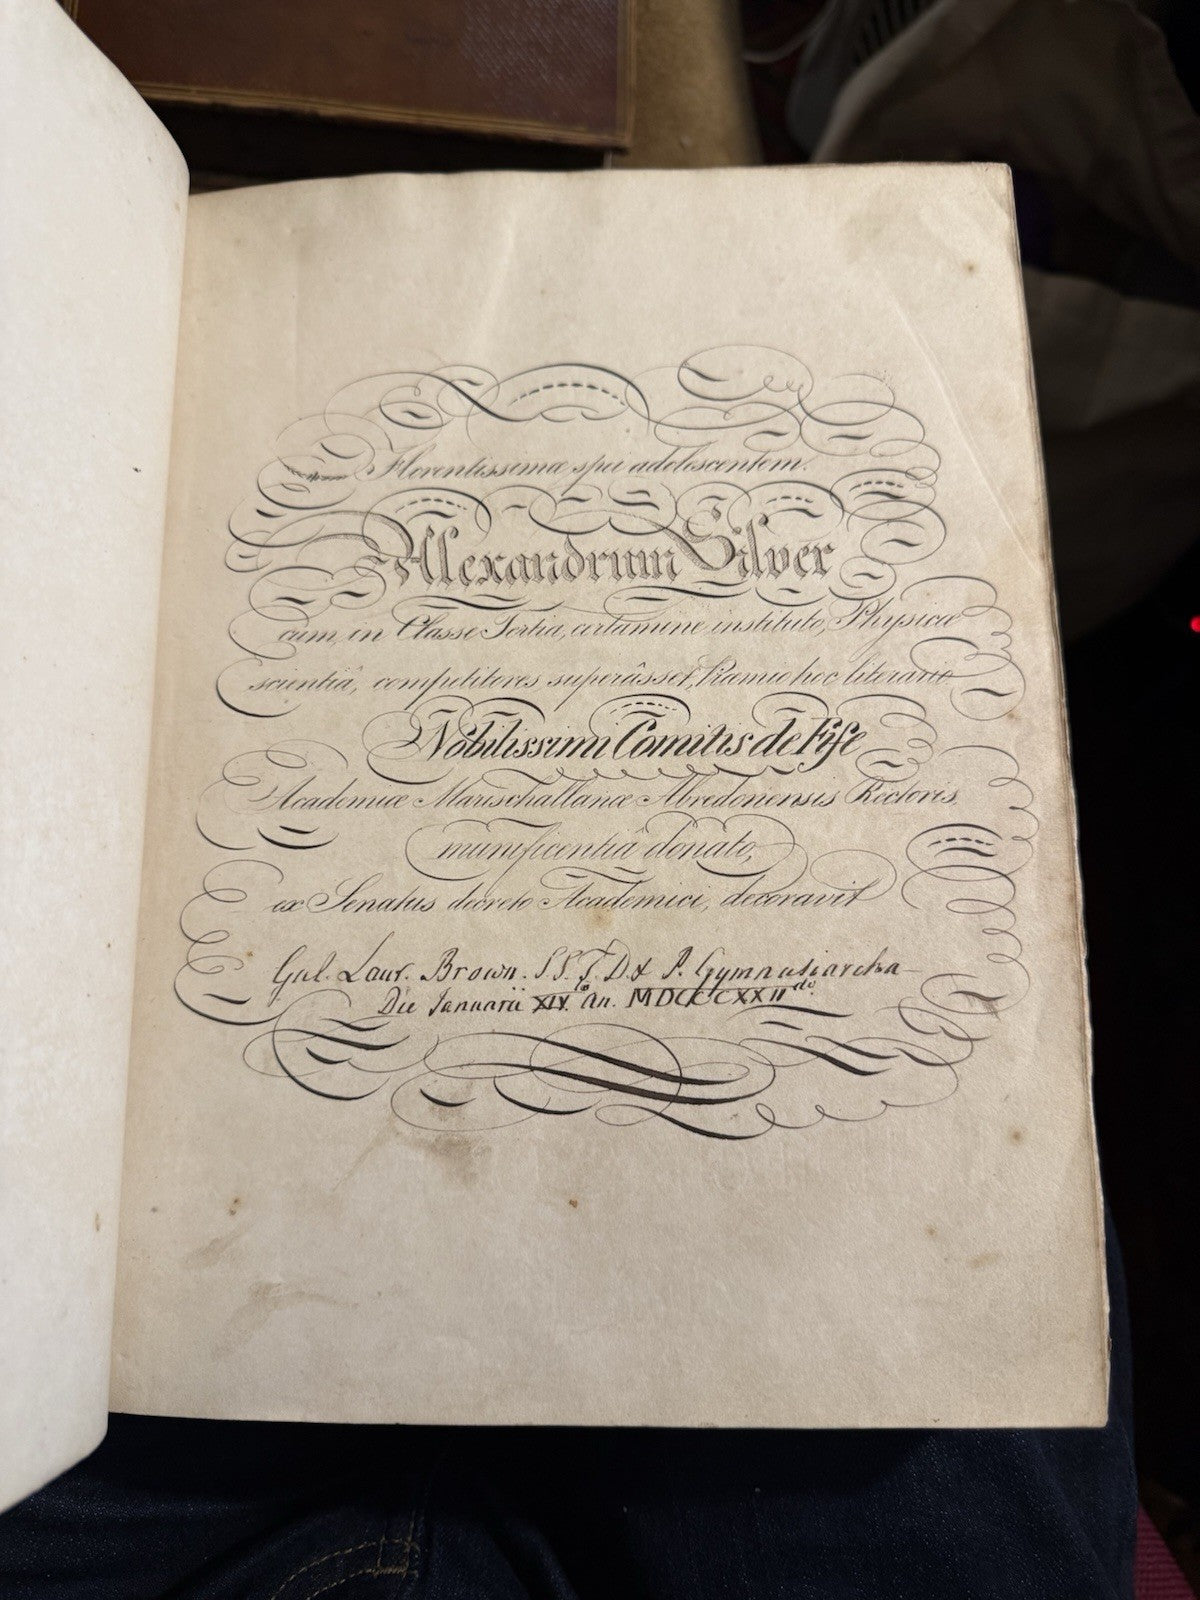 Florentissimæ spei adolescentem
Alexandrum Silver
cum, in Classe Tertia, certamine instituto, Physicâ
scientiâ, competitores superâsset, Præmio hoc literario
Nobilissimi Comitis de Fife
Academiæ Marischallanæ Abredonensis Rectoris,
munificentiâ donato,
ex Senatus decreto Academici, decoravit
Gul. Laur. Brown. S.S.T.D. & P. Gymnasiarcha
Die Januarii XIV.to An. MDCCCXXIIdo.